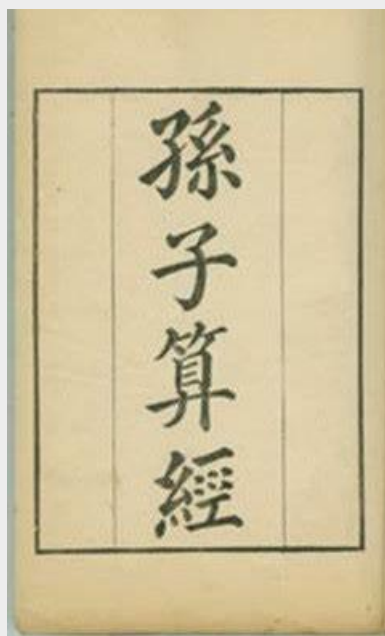 孫子算經